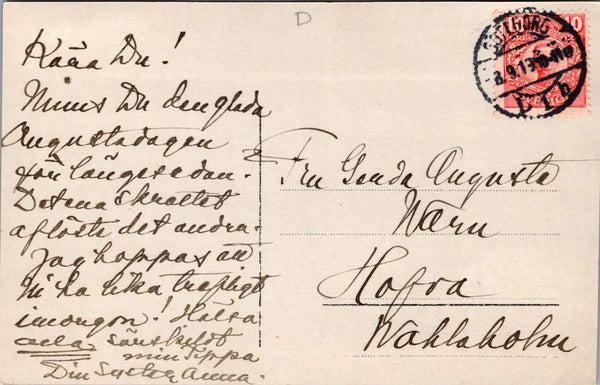 D
Kära Du!
Minns Du den glada
Augustadagen
för länge sedan.
Det ena skrattet
aflöste det andra.
Jag hoppas att
Ni ha lika trefligt
imorgon! Hälsa
alla särskildt
min Pippa
Din Syster Anna.
GÖTEBORG
8.9.13
L 1 b
10
SVERIGE
Fru Gerda Augusta
Wærn
Hofra
Wahlaholm